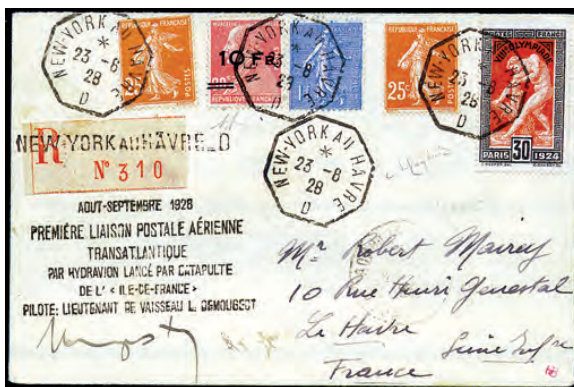 NEW-YORK AU HAVRE
*
23 -8
28
D
RÉPUBLIQUE FRANÇAISE
POSTES
10 Frs
NEW-YORK AU HAVRE
*
23 -8
28
D
RÉPUBLIQUE FRANÇAISE
25c
NEW-YORK AU HAVRE
23 -8
28
D
POSTES FRANCE
VIIIe OLYMPIADE
PARIS 30 1924
NEW-YORK AU HAVRE_D
R
N° 310
NEW-YORK AU HAVRE
*
23 -8
28
D
AOUT-SEPTEMBRE 1928
PREMIÈRE LIAISON POSTALE AÉRIENNE
TRANSATLANTIQUE
PAR HYDRAVION LANCÉ PAR CATAPULTE
DE L' « ILE-DE-FRANCE »
PILOTE: LIEUTENANT DE VAISSEAU L. DEMOUGEOT
Mr Robert Mairey
10 Rue Henri Genestal
Le Havre
Seine Infre
France